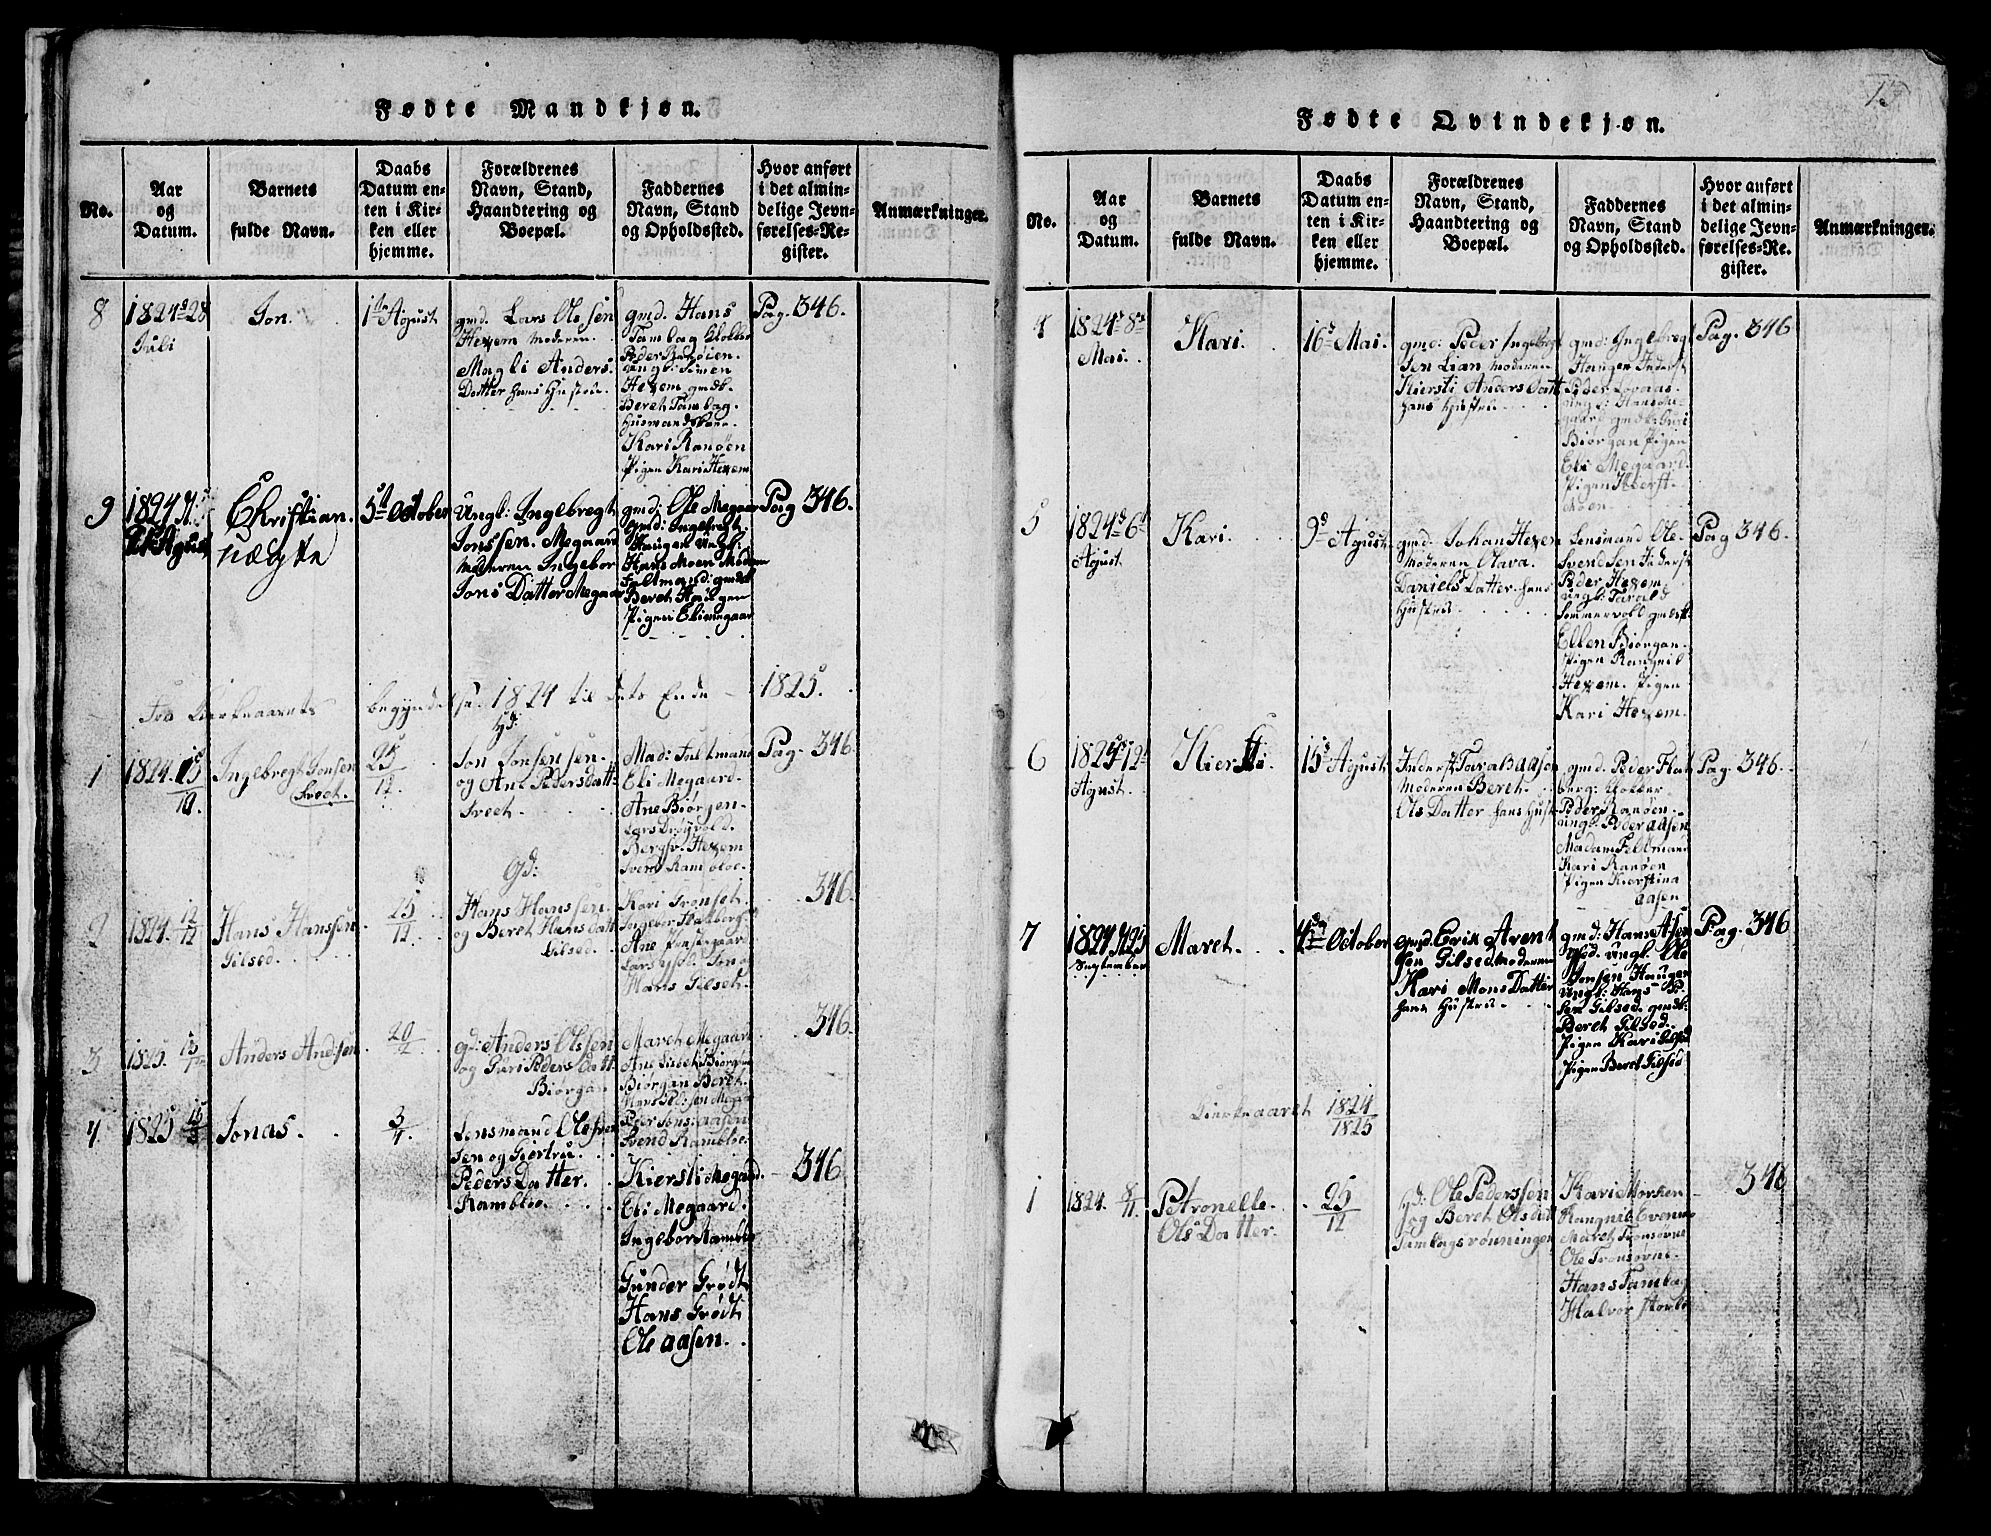 Fødte Mandkjøn.
No.
Aar
og
Datum.
Barnets
fulde Navn.
Daabs
Datum en-
ten i Kir-
ken eller
hjemme.
Forældrenes
Navn, Stand,
Haandtering og
Boepæl.
Faddernes
Navn, Stand
og Opholdssted.
Hvor anført
i det almin-
delige Jevn-
førelses-Re-
gister.
Anmærkninger.
8
1824 28
Juli
Jon.
1 Agust
gmd. Lars Olssen
Hexem moderen
Magli Anders
Datter hans Hustru.
gmd. Hans
Tamsbag Klokker
Peder Ranøien.
ungk: Simen
Hexem gmdk.
Beret Tamsbag.
Husmandskaane.
Kari Ranøen
Pigen Kari Hexem
Pag. 346.
9
1824
Christian.
uægte
5 October
Ungk: Ingebregt
Jonssen. Megaard
moderen Ingebor
Jons Datter Megaar
gmd: Ole Megaar
gmd: Ingebregt.
Haugen Ungk:
Hans Moen Madam
Faltmand: gmdk
Beret Haugen
Pigen Eli megaar
Pag 346.
For Kirkeaarets begyndelse. 1824 til dets Ende - 1825.
1
1824. 15/10
Ingebregt Jonsen
Sveet.
25/12
gd:
Jon Jonsen
og Ane Pedersdatt
Sveet.
Mad: Faltmand
Eli Megaard.
Ane Biørgen.
Lars Drøyvold.
Bergsv. Hexem
Svend Rambloe.
Pag. 346
2
1824. 12/12
Hans Hanssen
Gilsed.
25/12
gd:
Hans Hanssen
og Beret Hansdatt
Gilsed.
Kari Grønset.
Ingebor Flatberg
Ane
Hans Gilset.
346
3
1825.
Anders Andsen
20/2
gd: Anders Olssen
og Guri Peders Datt
Biørgan
Maret Megaar
Ane Lisbet Biørgan
Biørgan Beret.
346
4
1825
Jonas.
3/4.
Lensmand Ole Sven
sen og Giertru
Peders Datter.
Rambløe.
Peder Jons: aasen
Svend Rambløe.
Kiersti Megaard
Eli Megaard.
Ingebor Ramblø
Gunder Grødt
Hans Grødt
Ole aasen.
346
Fødte Qvindekjøn.
No.
Aar
og
Datum.
Barnets
fulde Navn.
Daabs
Datum en-
ten i Kir-
ken eller
hjemme.
Forældrenes
Navn, Stand,
Haandtering og
Boepæl.
Faddernes
Navn, Stand
og Opholdssted.
Hvor anført
i det almin-
delige Jevn-
førelses-Re-
gister.
Anmærkninger.
4
1824 8
Mai.
Kari.
16 Mai.
gmd: Peder Ingebregt
sen Lian moderen
Kiersti Anders Datt
hans Hustru
gmd: Ingebregt
Haugen Inderst
Peder Lovaas
Biørgan Pigen
Eli Megaard.
Pigen Kierst
Moen.
Pag. 346
5
1824 6
Agust
Kari.
9 Agust
gmd. Johan Hexem
moderen Olava.
Daniels Datter. hans
Hustru.
Lensmand Ole
Svendsen Inderst
Peder Hexem.
ungk: Tarald
Sommervold gmdsk
Ellen Biørgan.
Pigen Rangnil
Hexem. Pigen
Kari Hexem.
Pag 346.
6
1825 12
Agust.
Kiersti
15 Agust
Inderst Taral Aasen
moderen Beret
Ols Datter hans Hust
gmd. Peder Flat
berg: Klokker
Peder Ranøen.
ungk: Peder aasen
Madam Feltman
Kari Ranøen
Pigen Kierstina
aasen
Pag. 346.
7
1824 25
September
Maret.
4 October
gmd. Erik Arent
sen Gilsed Moderen
Kari Mons Datter
hans Hustru
gmd: Hans
ungk. Ole
Jonsen Haugen
ungk: Hans P.
sen Gilsed. gmdk:
Beret Gilsed.
Pigen Kari Gilsed
Pigen Beret Gilsed
Pag. 346
Kirkeaaret 1824/1825
1
1824. 8/11
Petronelle
Ols Datter.
25/12
gd: Ole Pederssen
og Beret Olsdatt
Tamlagsrønningen
Kari Storken
Rangnil Evenmo
Maret Tronsovne
Ole Tronsovne.
Hans Tamlag
Halvor Storbo
346